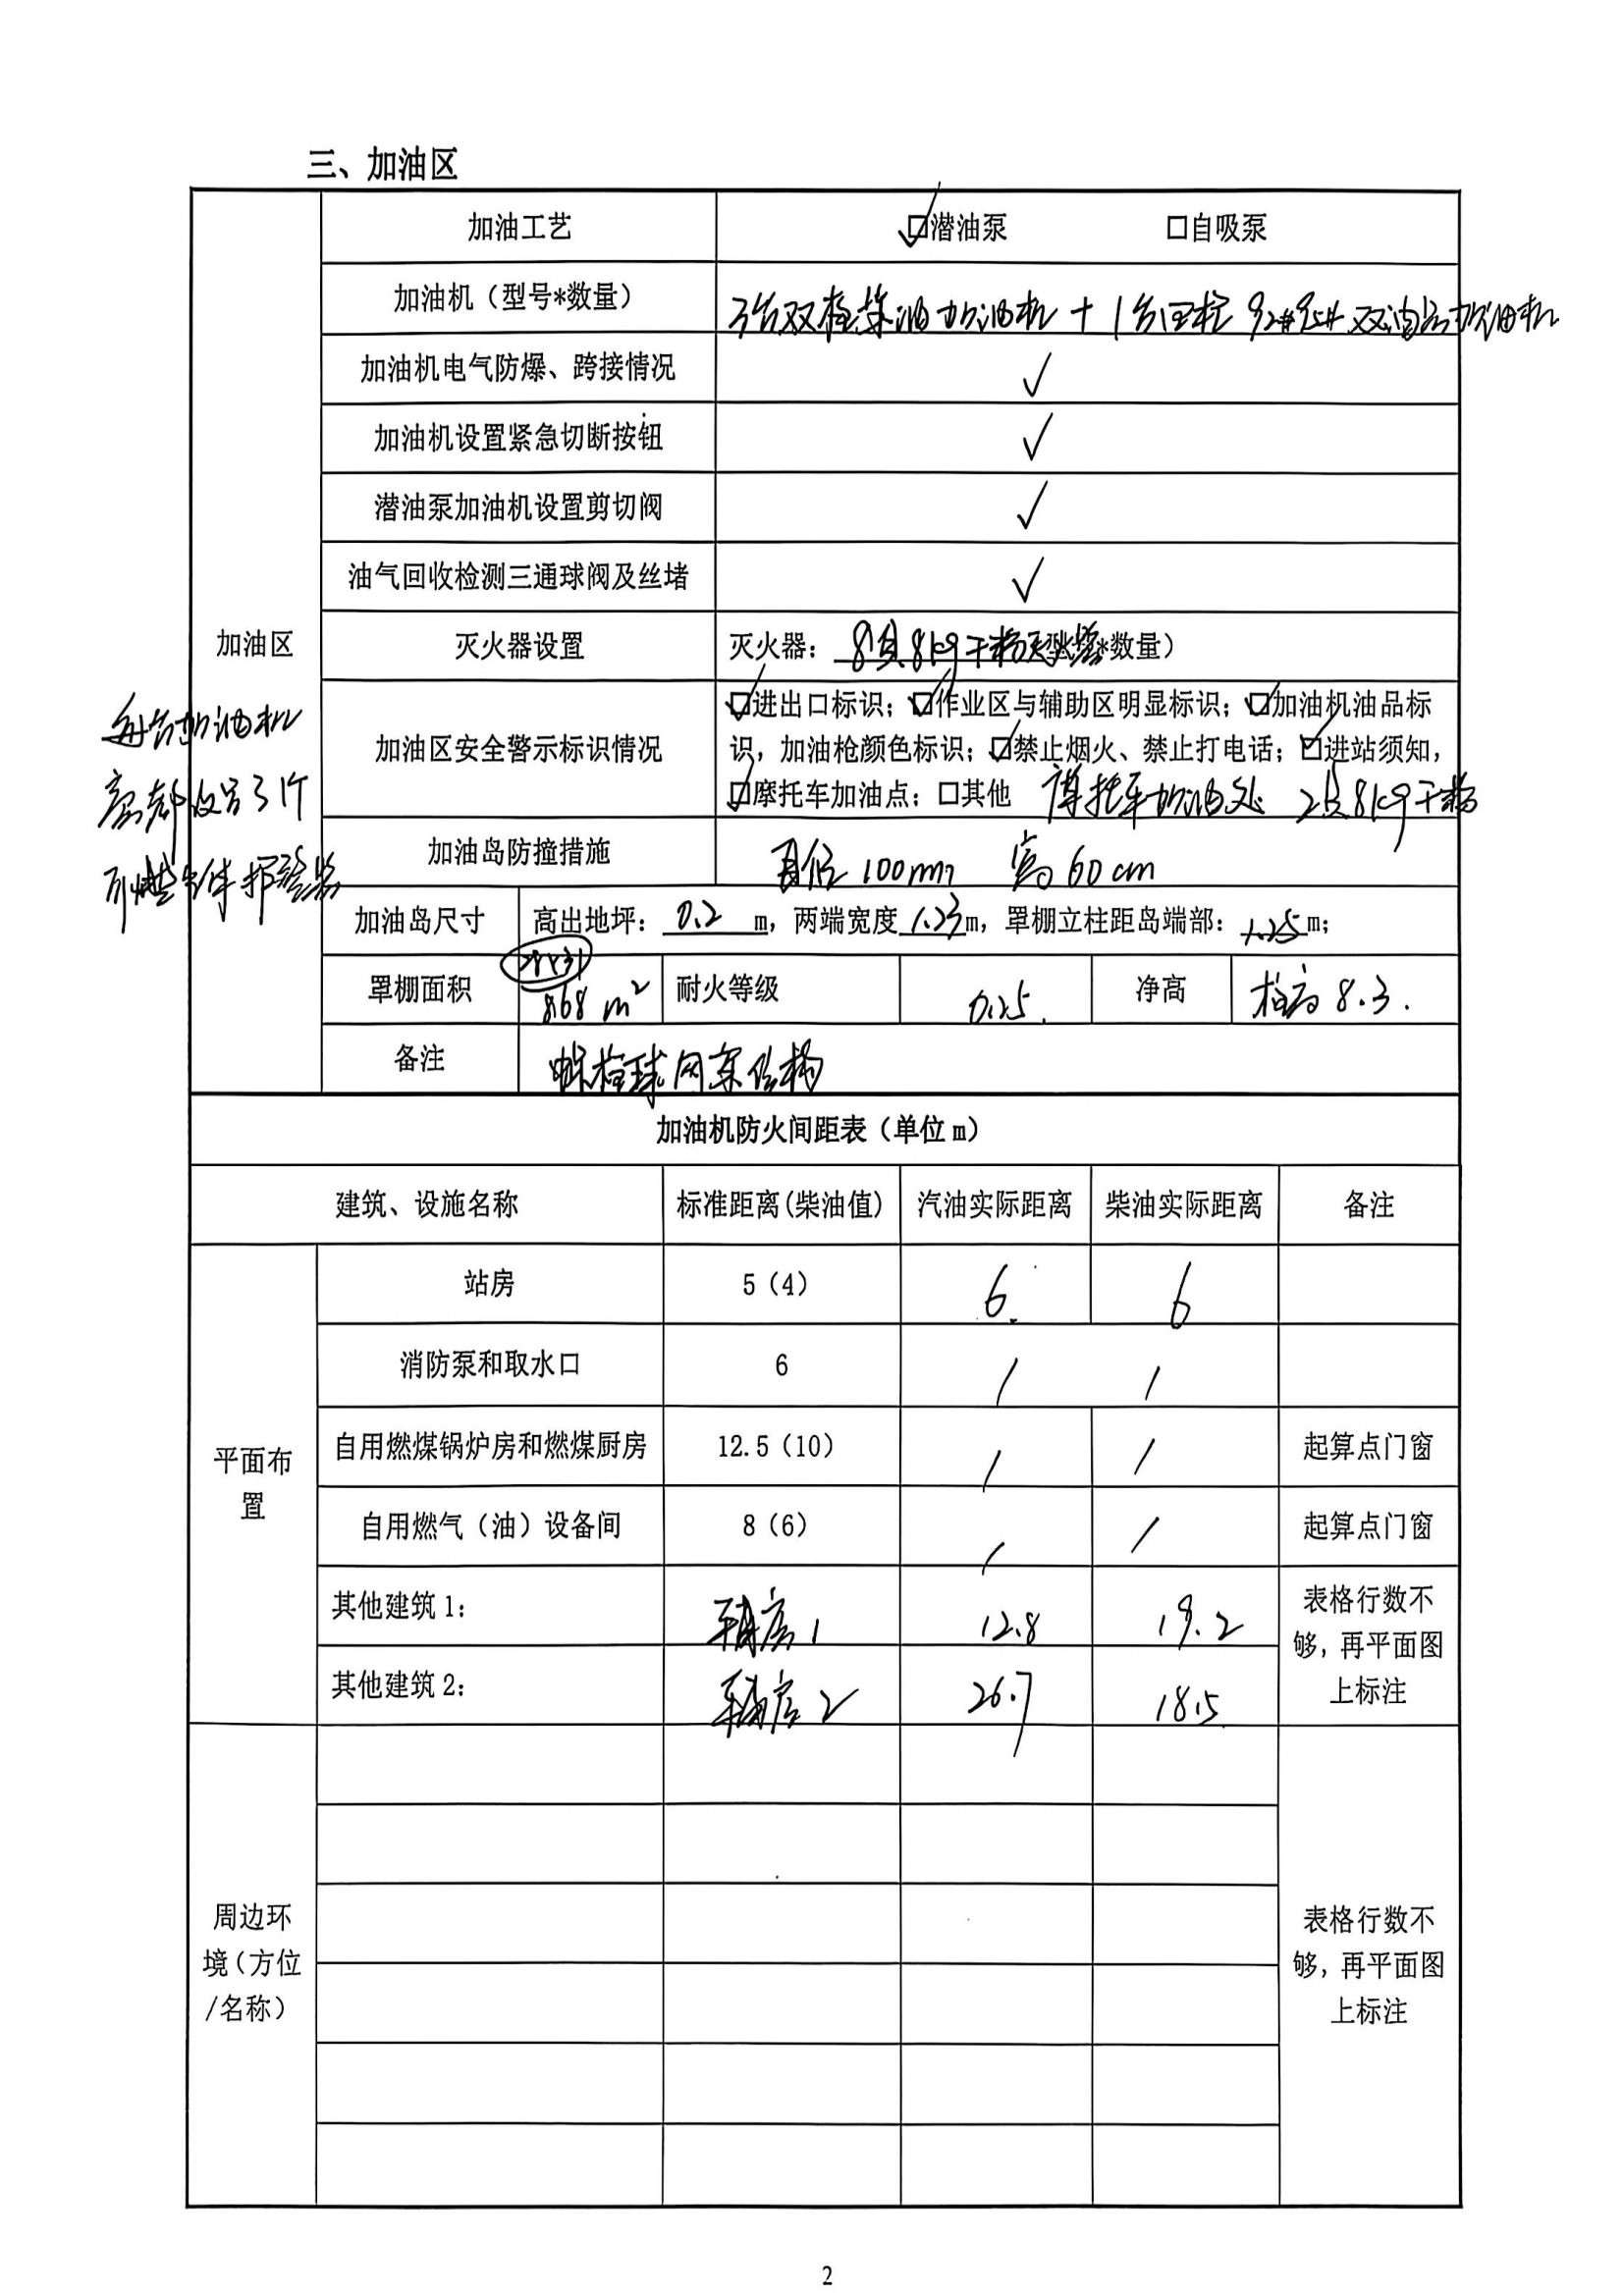 三、加油区
加油区
加油工艺
☑潜油泵 □自吸泵
加油机（型号*数量）
3台双枪柴油加油机 + 1台四枪 92# 95# 双油品加油机
加油机电气防爆、跨接情况
√
加油机设置紧急切断按钮
√
潜油泵加油机设置剪切阀
√
油气回收检测三通球阀及丝堵
√
灭火器设置
灭火器：8具8kg干粉灭火器*数量）
加油区安全警示标识情况
☑进出口标识；☑作业区与辅助区明显标识；☑加油机油品标
识，加油枪颜色标识；☑禁止烟火、禁止打电话；☑进站须知，
☑摩托车加油点；□其他 摩托车加油处 2具8kg干粉
每台加油机
底部设置了1个
可燃气体报警器
加油岛防撞措施
直径100mm 高60cm
加油岛尺寸
高出地坪：0.2 m，两端宽度1.23m，罩棚立柱距岛端部：1.25m；
罩棚面积
28×31
868 m²
耐火等级
0.25
净高
柱高8.3.
备注
螺栓球网架结构
加油机防火间距表（单位m）
建筑、设施名称 标准距离(柴油值) 汽油实际距离 柴油实际距离 备注
平面布
置
站房 5（4） 6 6
消防泵和取水口 6 / /
自用燃煤锅炉房和燃煤厨房 12.5（10） / / 起算点门窗
自用燃气（油）设备间 8（6） / / 起算点门窗
其他建筑1： 辅房1 12.8 19.2
其他建筑2： 辅房2 26.7 18.5
表格行数不
够，再平面图
上标注
周边环
境（方位
/名称）
表格行数不
够，再平面图
上标注
2